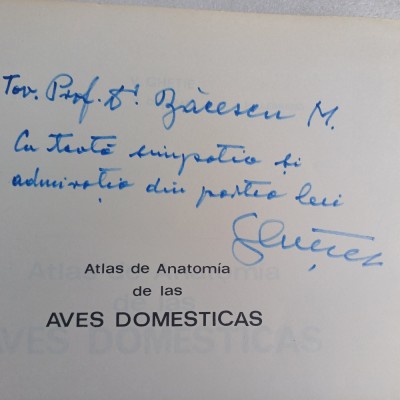 Tov. Prof. Dr. Băcescu M.
Cu toată simpatia și
admirația din partea lui
Atlas de Anatomía
de las
AVES DOMESTICAS